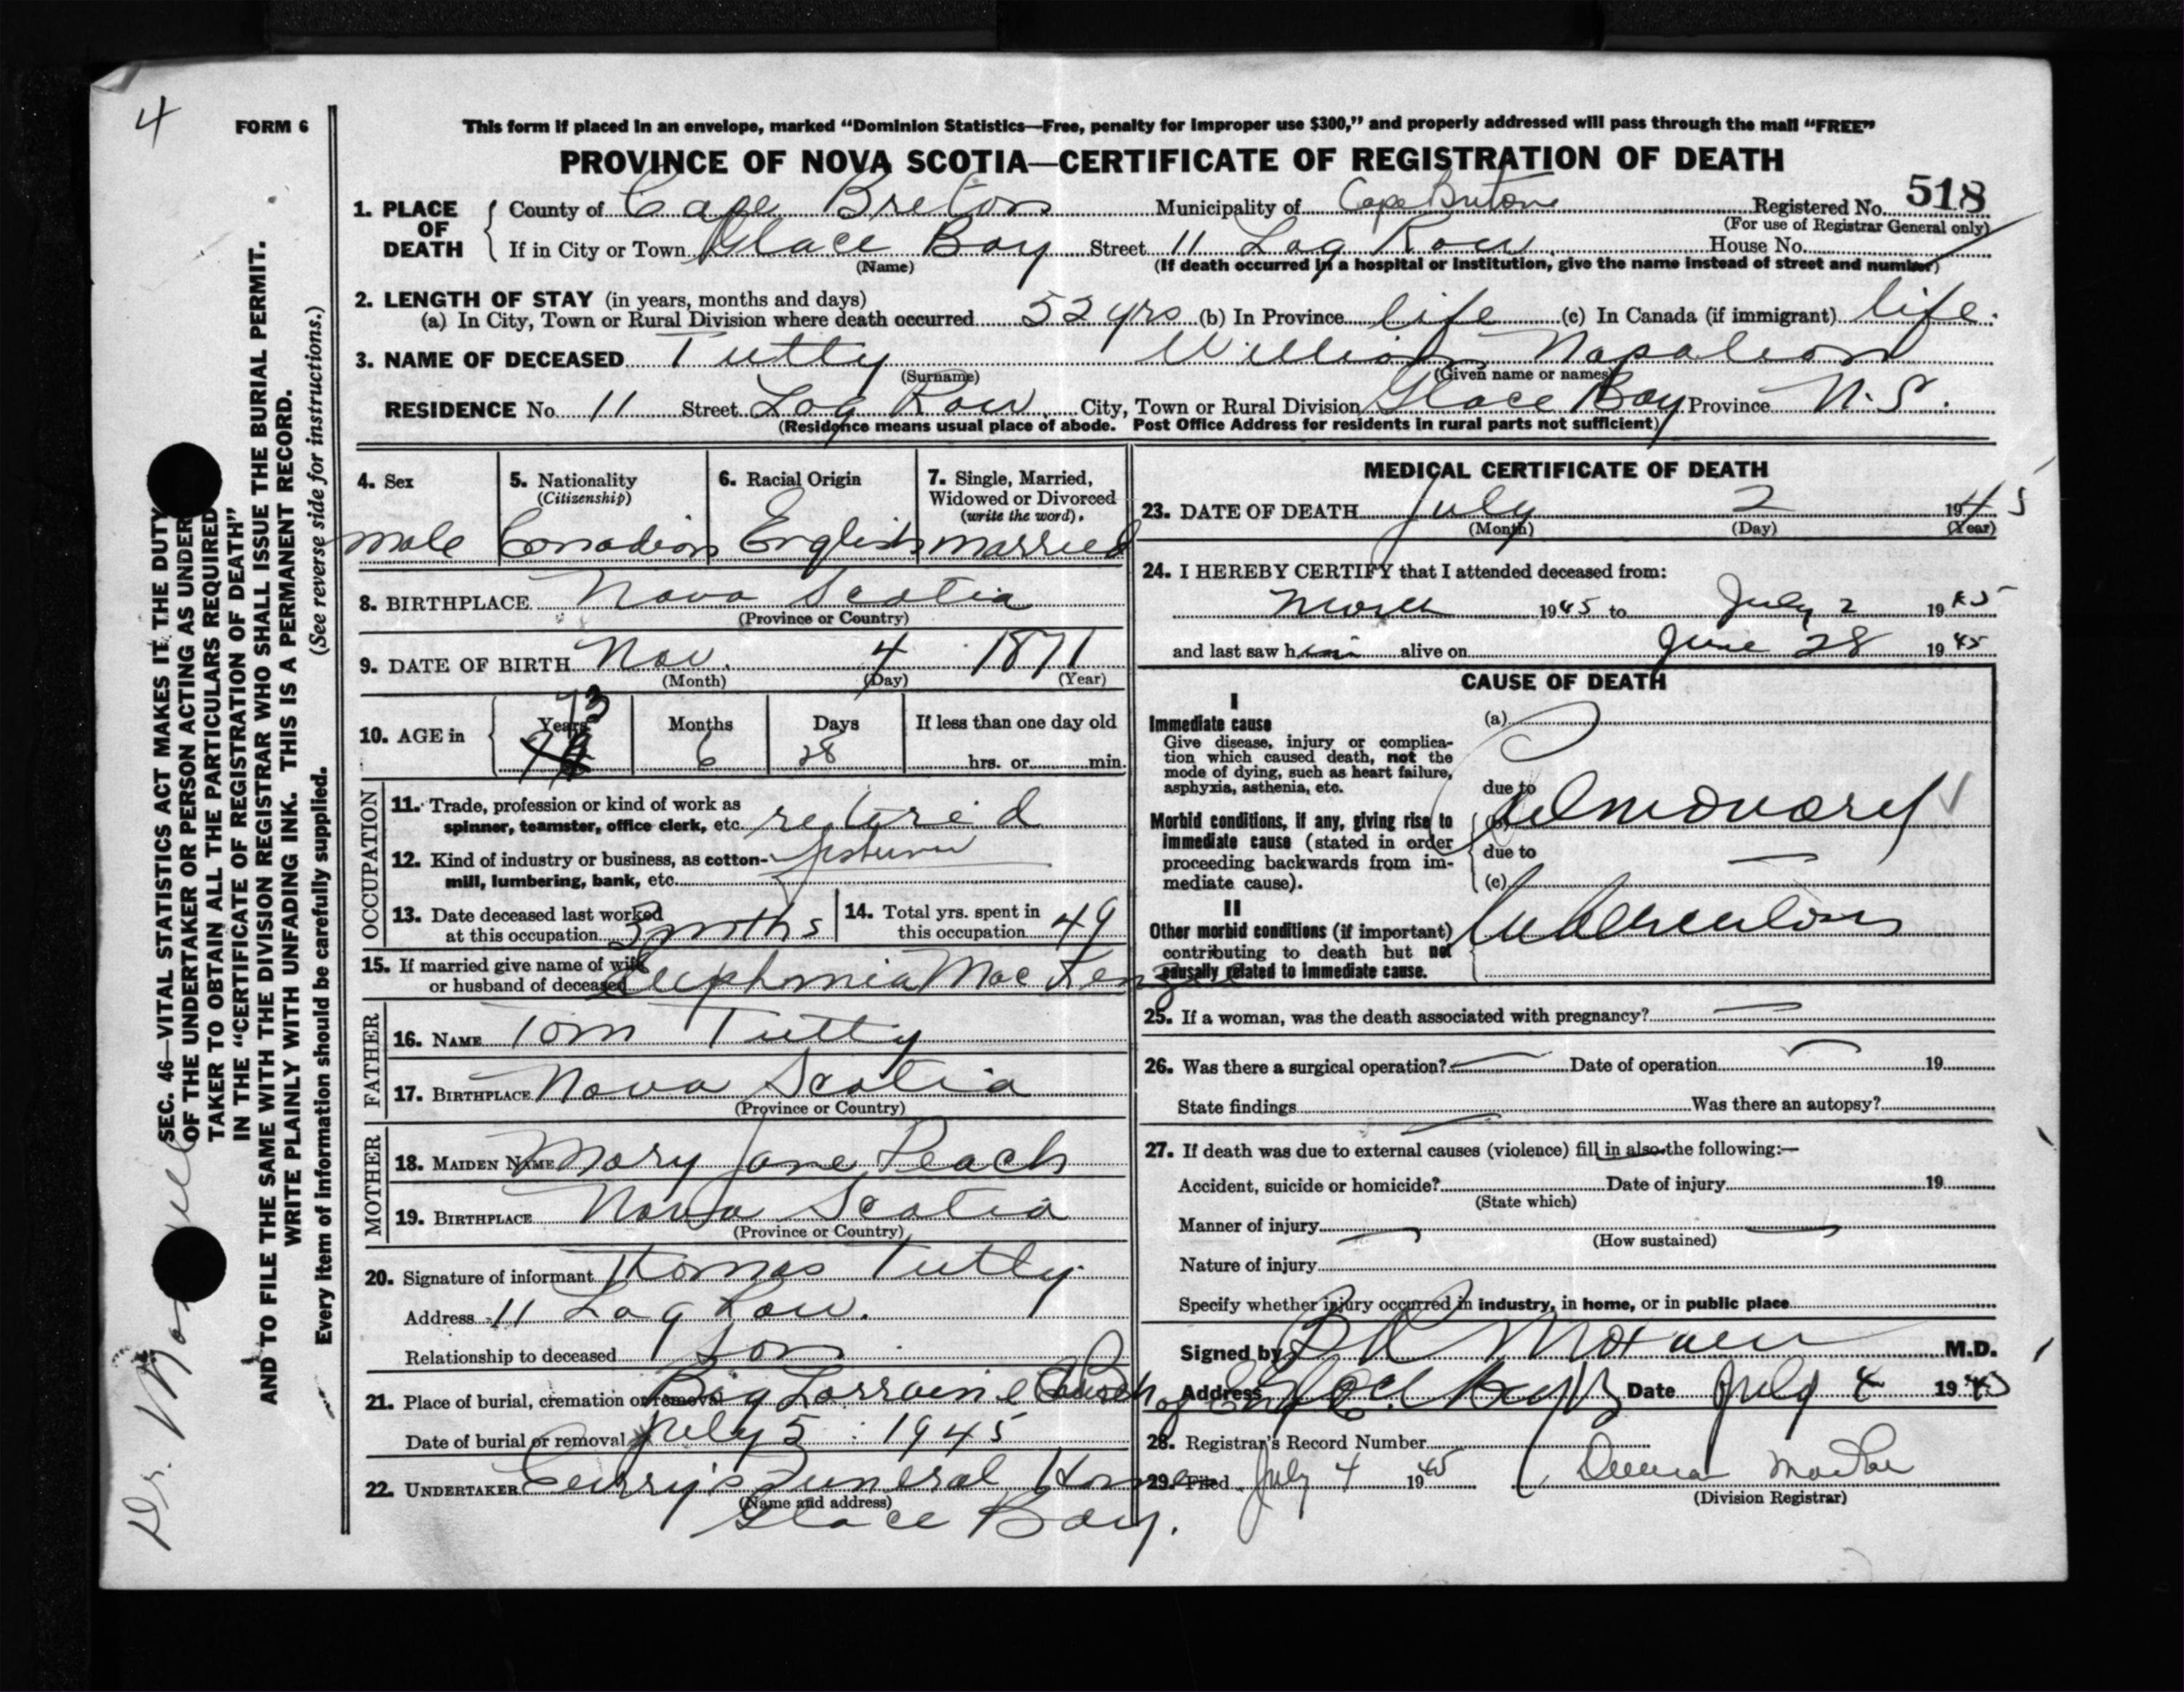 4
FORM 6
This form if placed in an envelope, marked “Dominion Statistics—Free, penalty for improper use $300,” and properly addressed will pass through the mail “FREE”
PROVINCE OF NOVA SCOTIA—CERTIFICATE OF REGISTRATION OF DEATH
1. PLACE OF DEATH County of Cape Breton Municipality of Cape Breton Registered No. 518
(For use of Registrar General only)
If in City or Town Glace Bay Street 11 Log Row House No.
(Name) (If death occurred in a hospital or institution, give the name instead of street and number)
2. LENGTH OF STAY (in years, months and days)
(a) In City, Town or Rural Division where death occurred 52 yrs (b) In Province life (c) In Canada (if immigrant) life.
3. NAME OF DECEASED Tutty William Napoleon
(Surname) (Given name or names)
RESIDENCE No. 11 Street Log Row. City, Town or Rural Division Glace Bay Province N.S.
(Residence means usual place of abode. Post Office Address for residents in rural parts not sufficient)
4. Sex 5. Nationality 6. Racial Origin 7. Single, Married,
(Citizenship) Widowed or Divorced
(write the word)
male Canadian English married
8. BIRTHPLACE Nova Scotia
(Province or Country)
9. DATE OF BIRTH Nov. 4 1871
(Month) (Day) (Year)
73
10. AGE in Years Months Days If less than one day old
6 28 hrs. or min.
OCCUPATION
11. Trade, profession or kind of work as
spinner, teamster, office clerk, etc. retired
12. Kind of industry or business, as cotton-
mill, lumbering, bank, etc.
13. Date deceased last worked
at this occupation 3 mths
14. Total yrs. spent in
this occupation 49
15. If married give name of wife
or husband of deceased Euphemia MacKenzie
FATHER
16. NAME Tom Tutty
17. BIRTHPLACE Nova Scotia
(Province or Country)
MOTHER
18. MAIDEN NAME Mary Jane Peach
19. BIRTHPLACE Nova Scotia
(Province or Country)
20. Signature of informant Thomas Tutty
Address 11 Log Row.
Relationship to deceased Son
21. Place of burial, cremation or removal Big Lorraine Church of Eng
Date of burial or removal July 5 1945
22. UNDERTAKER Curry's Funeral Home
(Name and address)
Glace Bay.
MEDICAL CERTIFICATE OF DEATH
23. DATE OF DEATH July 2 1945
(Month) (Day) (Year)
24. I HEREBY CERTIFY that I attended deceased from:
March 1945 to July 2 1945
and last saw him alive on June 28 1945
CAUSE OF DEATH
I
Immediate cause (a)
Give disease, injury or complica-
tion which caused death, not the
mode of dying, such as heart failure,
asphyxia, asthenia, etc. due to
Pulmonary
Morbid conditions, if any, giving rise to (b)
immediate cause (stated in order due to
proceeding backwards from im-
mediate cause). (c)
Tuberculosis
II
Other morbid conditions (if important)
contributing to death but not
causally related to immediate cause.
25. If a woman, was the death associated with pregnancy?
26. Was there a surgical operation? Date of operation 19
State findings Was there an autopsy?
27. If death was due to external causes (violence) fill in also the following:—
Accident, suicide or homicide? Date of injury 19
(State which)
Manner of injury
(How sustained)
Nature of injury
Specify whether injury occurred in industry, in home, or in public place
Signed by M.D.
Address Date July 4 1945
28. Registrar's Record Number
29. Filed July 4 1945
(Division Registrar)
SEC. 46—VITAL STATISTICS ACT MAKES IT THE DUTY
OF THE UNDERTAKER OR PERSON ACTING AS UNDER
TAKER TO OBTAIN ALL THE PARTICULARS REQUIRED
IN THE “CERTIFICATE OF REGISTRATION OF DEATH”
AND TO FILE THE SAME WITH THE DIVISION REGISTRAR WHO SHALL ISSUE THE BURIAL PERMIT.
WRITE PLAINLY WITH UNFADING INK. THIS IS A PERMANENT RECORD.
Every item of information should be carefully supplied. (See reverse side for instructions.)
Dr.